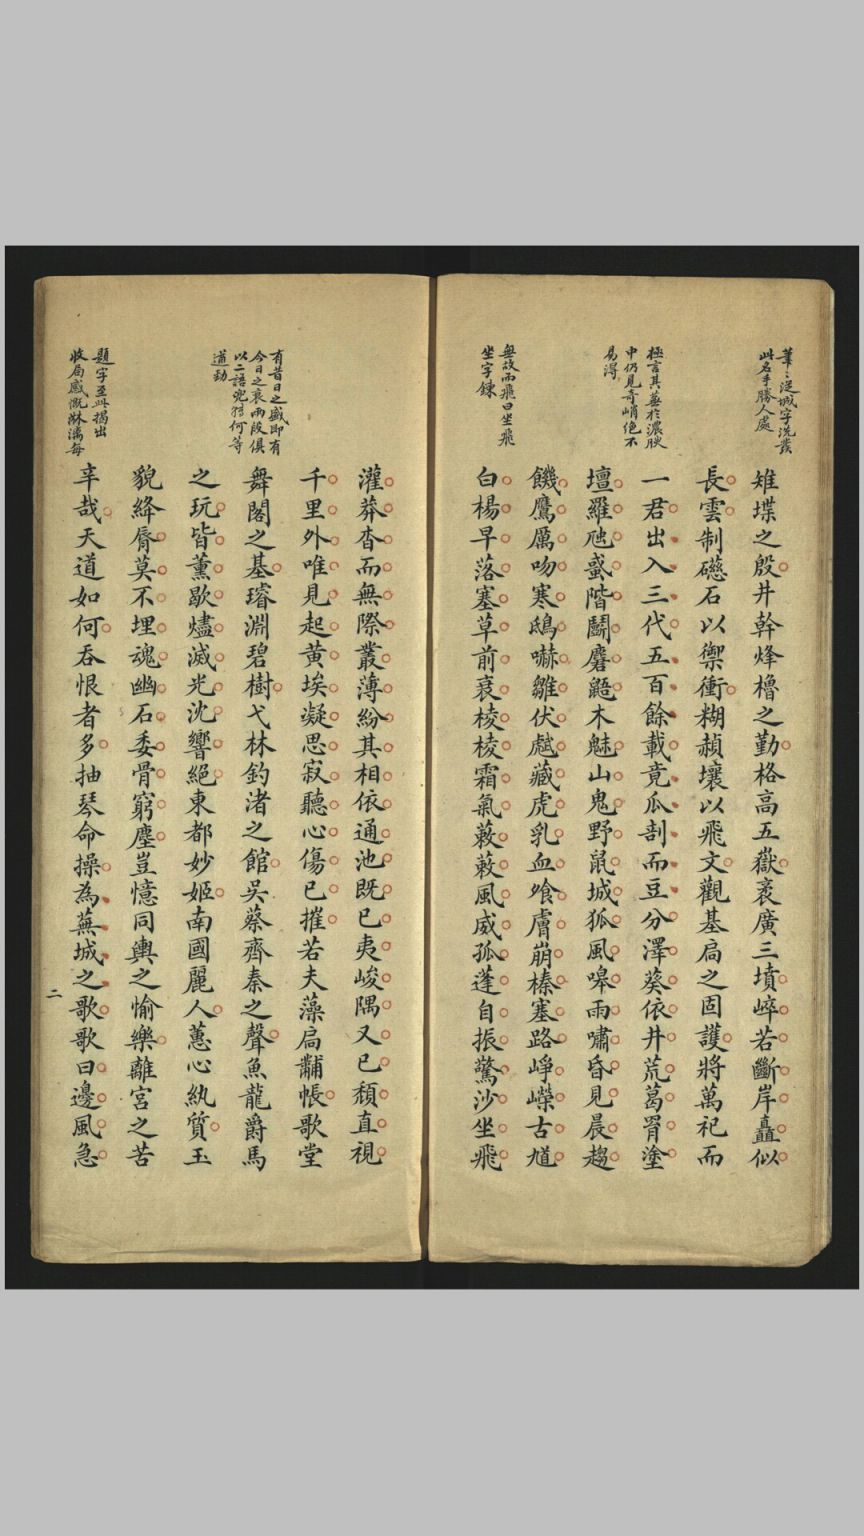 筆筆從城字洗發
此名手勝人處
極言其蕪於濃腴
中仍見奇峭絕不
易得
無故而飛曰坐飛
坐字鍊
雉堞之殷井幹烽櫓之勤格高五嶽袤廣三墳崪若斷岸矗似
長雲制礠石以禦衝糊赬壤以飛文觀基扃之固護將萬祀而
一君出入三代五百餘載竟瓜剖而豆分澤葵依井荒葛罥塗
壇羅虺蜮階鬭麏鼯木魅山鬼野鼠城狐風嘷雨嘯昏見晨趨
饑鷹厲吻寒鴟嚇雛伏虣藏虎乳血飧膚崩榛塞路崢嶸古馗
白楊早落塞草前衰棱棱霜氣蔌蔌風威孤蓬自振驚沙坐飛
有昔日之盛即有
今日之衰兩段俱
以二語兜轉何等
遒勁
題字至此揭出
收局感慨淋漓每
灌莽杳而無際叢薄紛其相依通池既已夷峻隅又已頹直視
千里外唯見起黃埃凝思寂聽心傷已摧若夫藻扃黼帳歌堂
舞閣之基璿淵碧樹弋林釣渚之館吳蔡齊秦之聲魚龍爵馬
之玩皆薰歇燼滅光沈響絕東都妙姬南國麗人蕙心紈質玉
貌絳脣莫不埋魂幽石委骨窮塵豈憶同輿之愉樂離宮之苦
辛哉天道如何吞恨者多抽琴命操為蕪城之歌歌曰邊風急
二